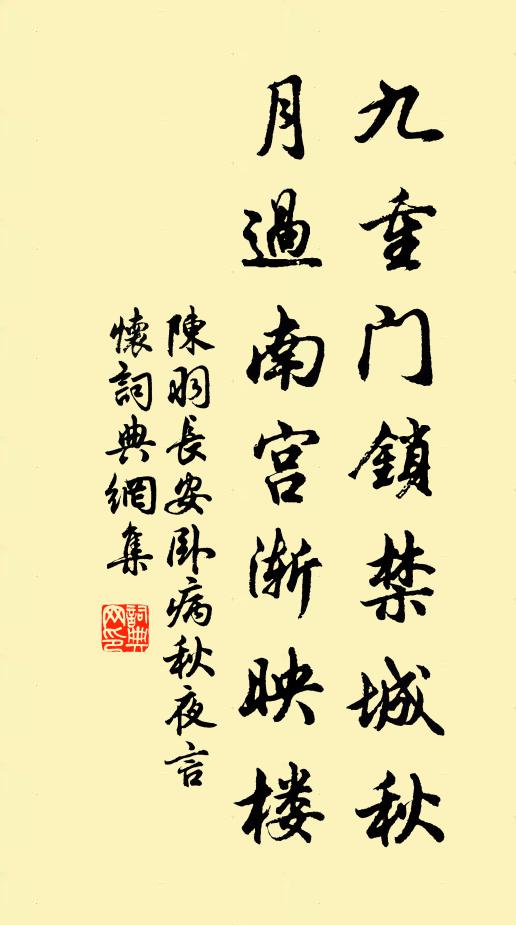 九重门鎖禁城秋
月過南宫渐映楼
陳羽長安卧病秋夜言
懷詞典網集
詞典
网印